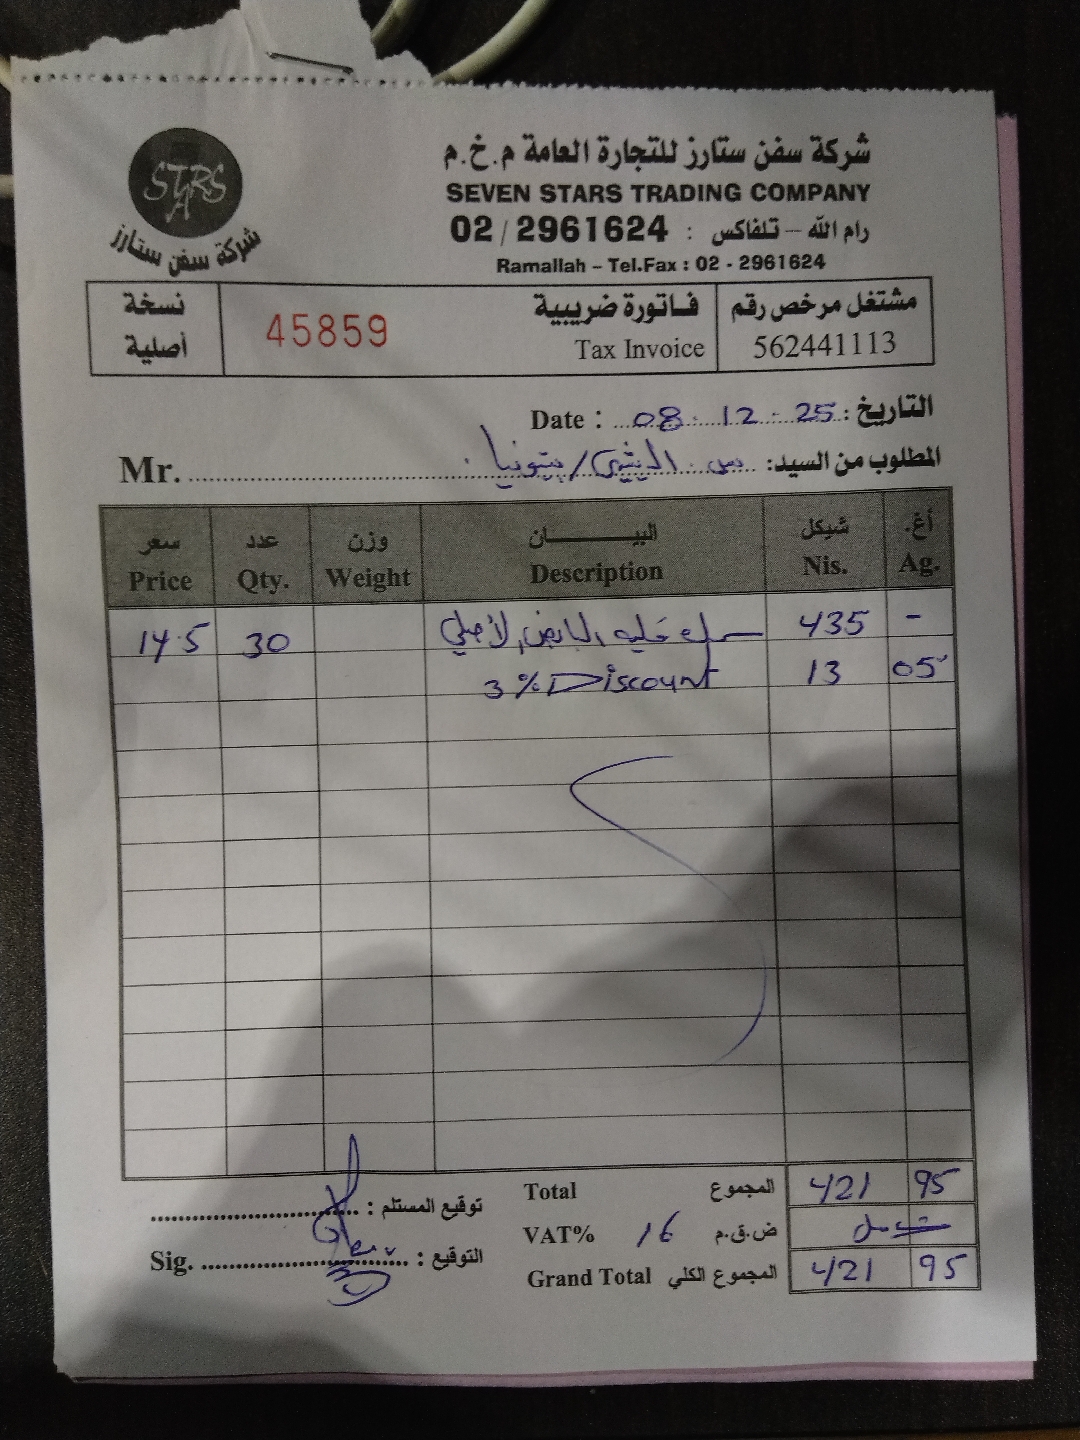 STARS
شركة سفن ستارز
شركة سفن ستارز للتجارة العامة م.خ.م
SEVEN STARS TRADING COMPANY
رام الله – تلفاكس : 02 / 2961624
Ramallah – Tel.Fax : 02 - 2961624
مشتغل مرخص رقم فاتورة ضريبية نسخة
562441113 Tax Invoice 45859 أصلية
التاريخ : Date : 08 . 12 . 25
المطلوب من السيد: س. / بيتونيا Mr.
سعر عدد وزن البيـــــــان شيكل أغ.
Price Qty. Weight Description Nis. Ag.
14.5 30 435 -
3% Discount 13 05
توقيع المستلم : Total المجموع 421 95
VAT% 16 ض.ق.م
Sig. التوقيع : Grand Total المجموع الكلي 421 95